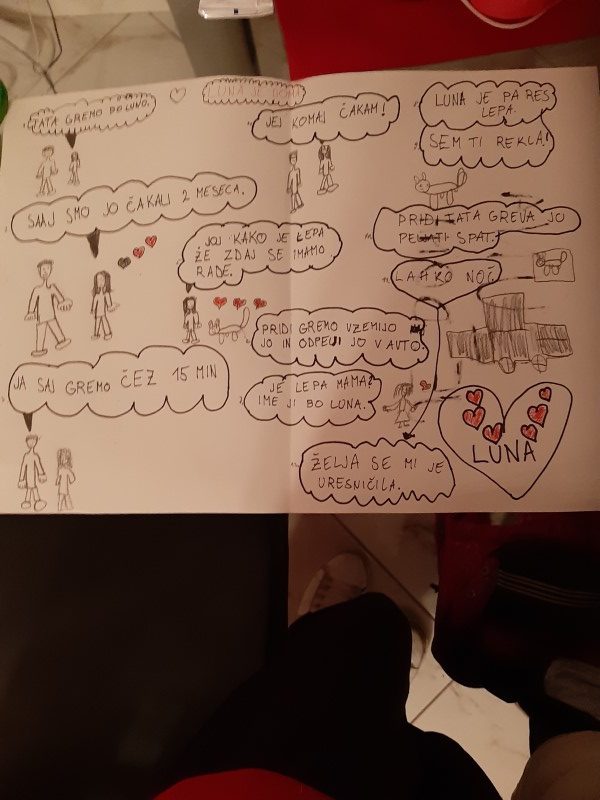 LUNA JE DOMA
TATA GREMO PO LUNO.
SAAJ SMO JO ČAKALI 2 MESECA.
JA SAJ GREMO ČEZ 15 MIN
JEJ KOMAJ ČAKAM!
JOJ KAKO JE LEPA
ŽE ZDAJ SE IMAMO
RADE.
PRIDI GREMO VZEMIJO
JO IN ODPELJI JO V AVTO.
JE LEPA MAMA?
IME JI BO LUNA.
LUNA JE PA RES
LEPA.
SEM TI REKLA!
PRIDI TATA GREVA JO
PELJATI SPAT.
LAHKO NOČ.
ŽELJA SE MI JE
URESNIČILA.
LUNA